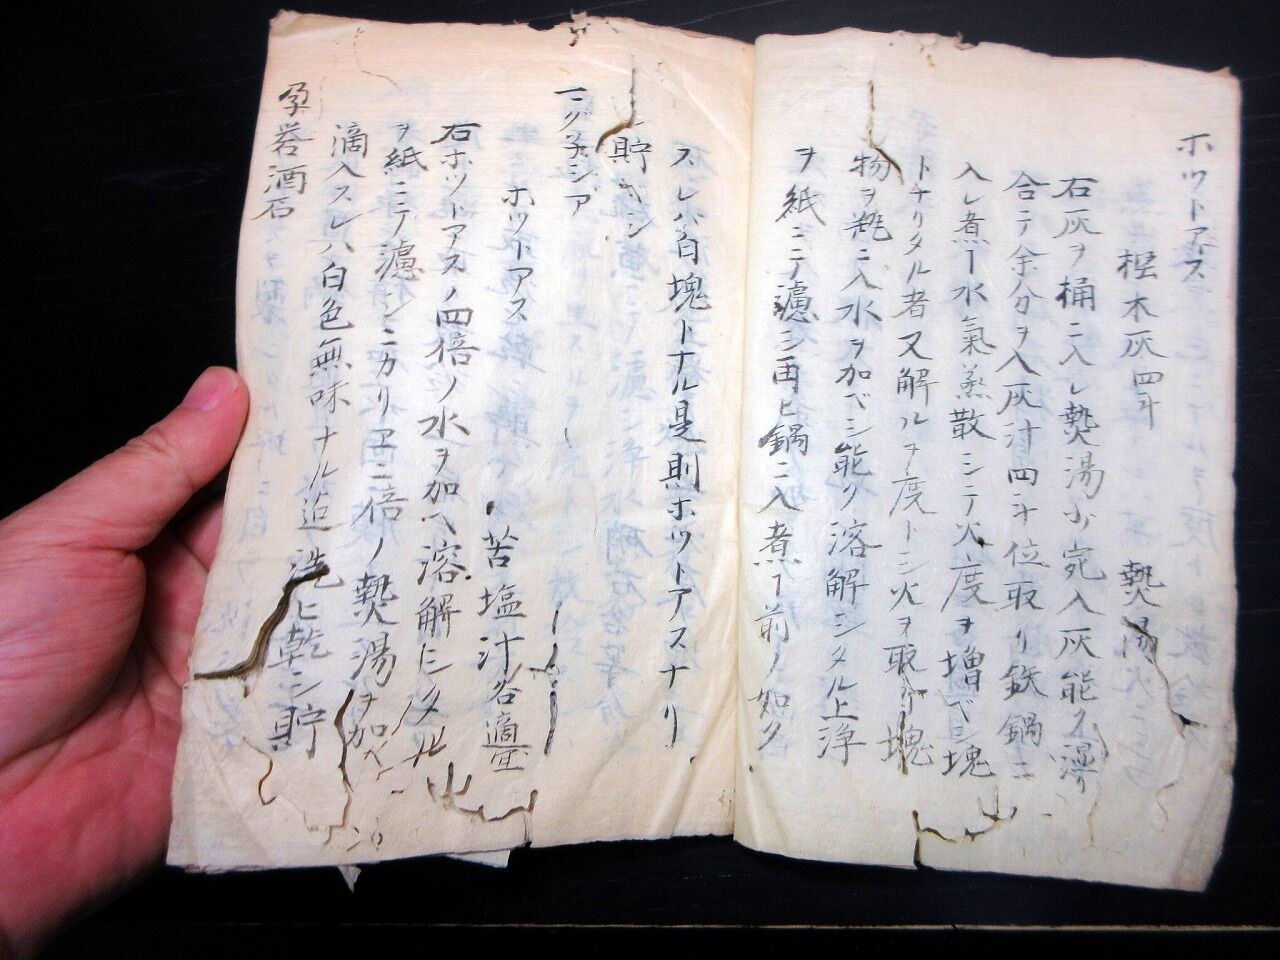 ホツトアス
樫木灰四斗 熱湯
石灰ヲ桶ニ入レ熱湯少宛入灰能ク湿リ
合テ余分ヲ入灰汁四斗位取リ鉄鍋ニ
入レ煮テ水氣蒸散シテ火度ヲ増ベシ塊
トナリタル者又解ルヲ度トシ火ヲ取リ塊
物ヲ瓶ニ入水ヲ加ベシ能ク溶解シタル上浄
ヲ紙ニテ濾シ再ヒ鍋ニ入煮テ前ノ如ク
スレハ白塊トナル是則ホツトアスナリ
貯ベシ
マグネシア
ホツトアス 苦塩汁各適宜
右ホツトアスノ四倍ノ水ヲ加ヘ溶解シタル
ヲ紙ニテ濾シニカリヱニ倍ノ熱湯ヲ加ヘ
滴入スレハ白色無味ナル迄洗ヒ乾シ貯
孕礬酒石